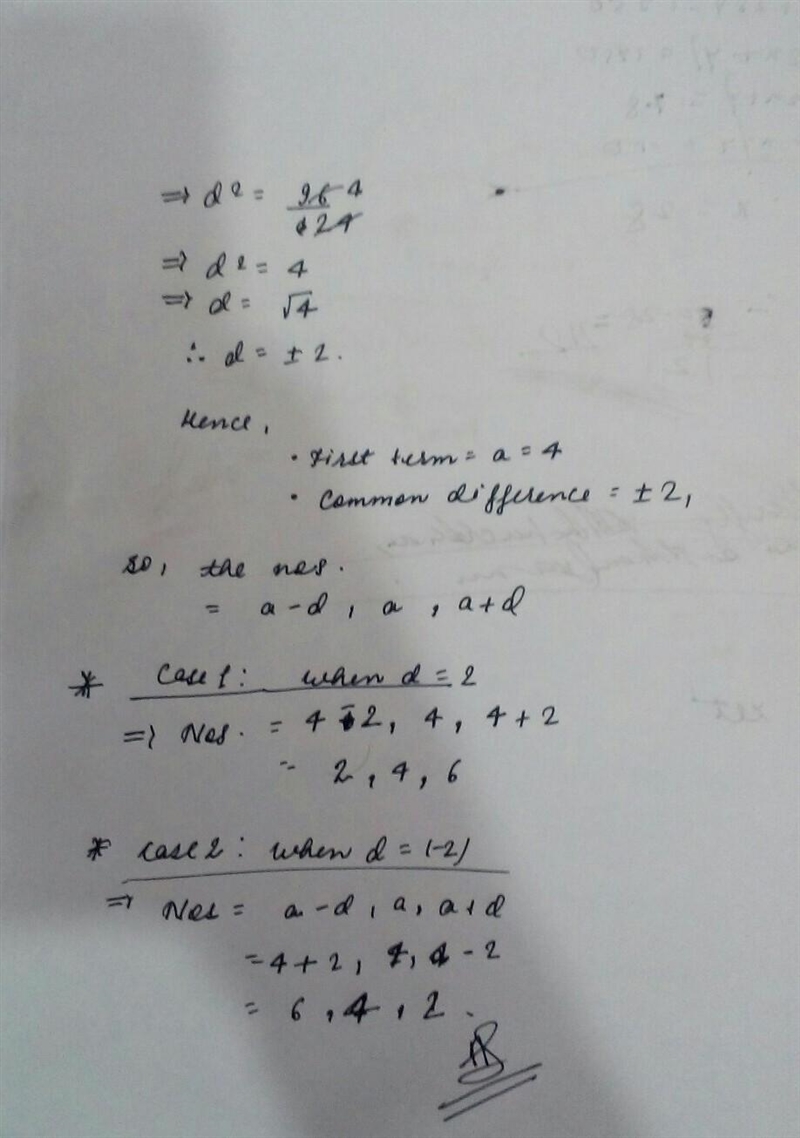 ⇒ d² = 96 4
24
⇒ d² = 4
⇒ d = √4
∴ d = ± 2.
Hence,
• First term = a = 4
• Common difference = ± 2,
so, the nos.
= a - d , a , a + d
* Case 1: when d = 2
⇒ Nos. = 4 - 2, 4, 4 + 2
= 2, 4, 6
* Case 2 : when d = (-2)
⇒ Nos = a - d , a, a + d
= 4 + 2, 4, 4 - 2
= 6 , 4 , 2 .